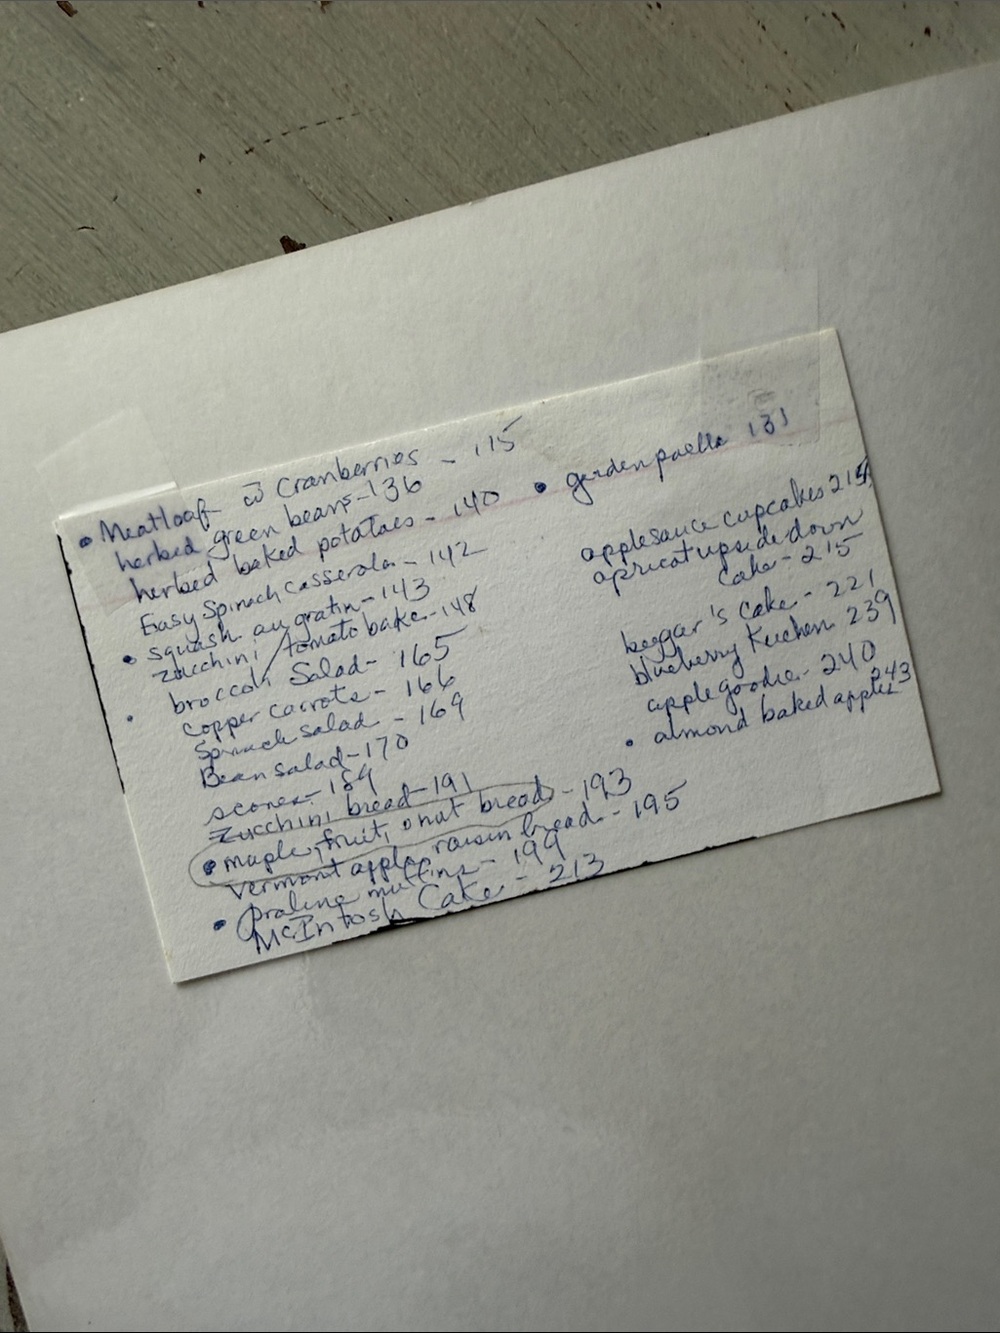 • Meatloaf w̄ Cranberries - 115
herbed green beans - 136
herbed baked potatoes - 140
Easy Spinach casserole - 142
• squash au gratin - 143
zucchini / tomato bake - 148
• broccoli Salad - 165
copper carrots - 166
Spinach salad - 169
Bean salad - 170
scones - 189
zucchini bread - 191
• maple, fruit, & nut bread - 193
Vermont apple raisin bread - 195
• praline muffins - 199
McIntosh Cake - 213
• garden paella 131
applesauce cupcakes 215
apricot upside down
cake - 215
beggar's cake - 221
blueberry Kuchen 239
apple goodie - 240
• almond baked apples 243